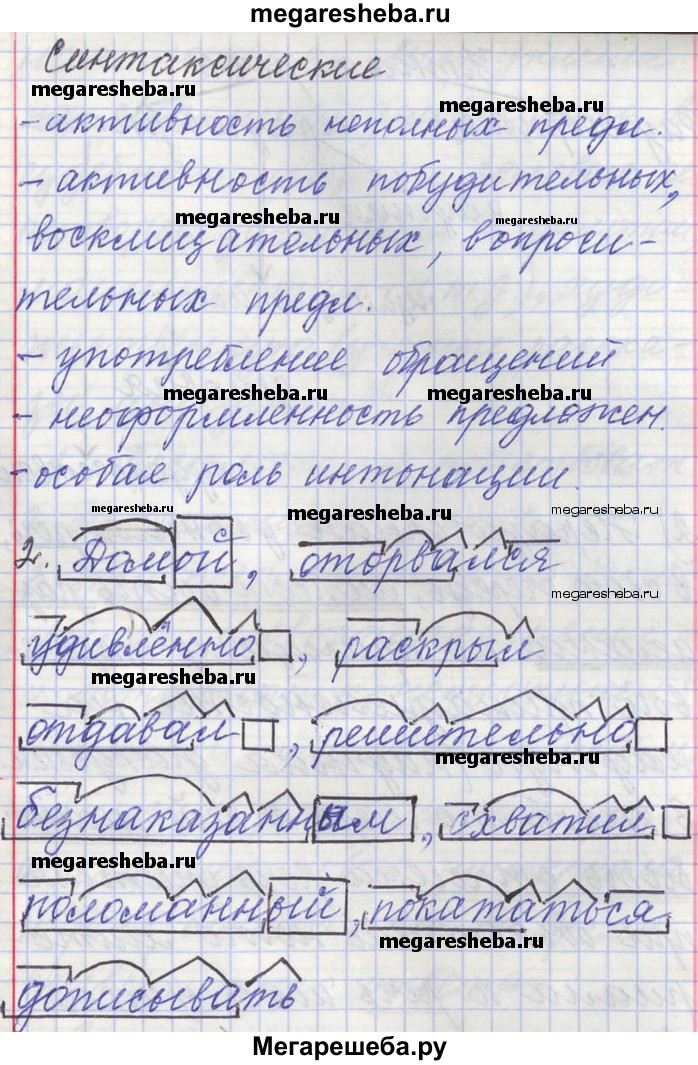 megaresheba.ru
Синтаксические
megaresheba.ru
megaresheba.ru
- активность неполных предл.
- активность побудительных,
megaresheba.ru
megaresheba.ru
восклицательных, вопроси-
тельных предл.
- употребление обращений
megaresheba.ru
megaresheba.ru
- неоформленность предложен.
- особая роль интонации.
megaresheba.ru
megaresheba.ru
megaresheba.ru
2. Домой, оторвался
megaresheba.ru
удивлённо, раскрыл
megaresheba.ru
отдавал, решительно
megaresheba.ru
безнаказанным, схватил
megaresheba.ru
поломанный, покататься
megaresheba.ru
дописывать
Мегарешеба.ру